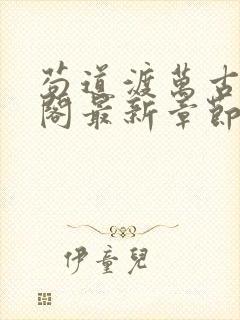 苟道渡萬古
閣最新章節
伊童兒